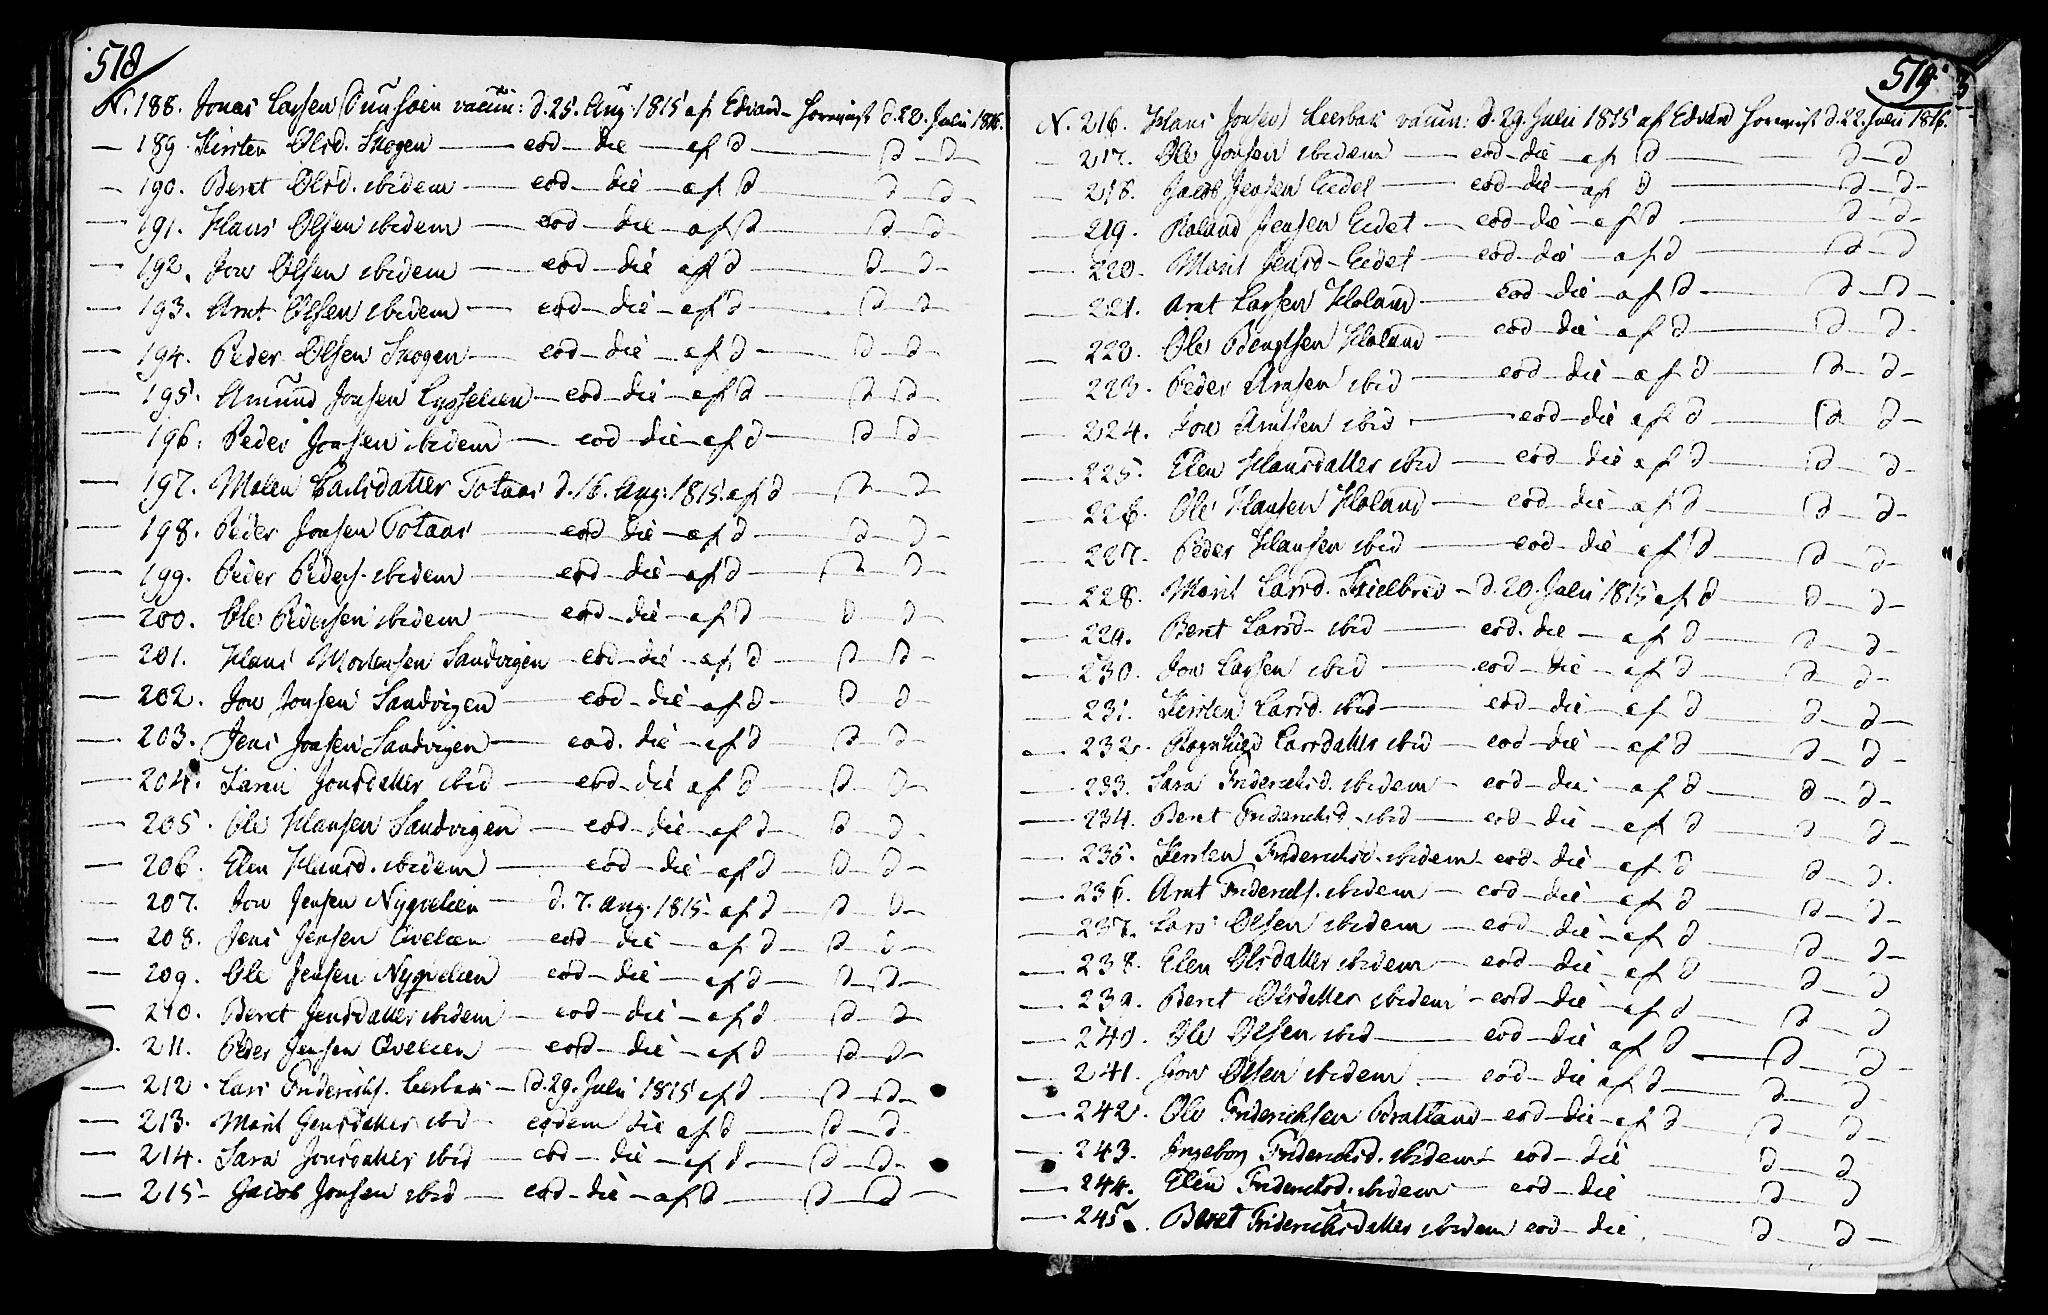 518
N. 188. Jonas Larsen vaccin: d. 25. Aug: 1815 af Edvard Hornqvist d. 22. Julii 1816.
— 189. Kirsten Olsd. Skogen — eod — die — af d — d — d —
— 190. Beret Olsd. ibidem — eod — die — af d — d — d —
— 191. Hans Olsen ibidem — eod — die — af d — d — d —
— 192. Jon Olsen ibidem — eod — die af d — d — d —
— 193. Arnt Olsen ibidem — eod — die — af d — d — d —
— 194. Peder Olsen Skogen — eod — die — af d — d — d —
— 195. Amund Jonsen Lysfelien — eod — die — af d — d — d —
— 196. Peder Jonsen ibidem — eod — die — af d — d — d —
— 197. Malen Carlsdatter Totaas d. 16. Aug: 1815. af d — d — d —
— 198. Peder Jonsen Totaas — eod — die — af d — d — d —
— 199. Peder Peders. ibidem — eod — die — af d — d — d —
— 200. Ole Pedersen ibidem — eod — die — af d — d — d —
— 201. Hans Mortensen Sandvigen — eod — die — af d — d — d —
— 202. Jon Jonsen Sandvigen — eod — die — af d — d — d —
— 203. Jens Jonsen Sandvigen — eod. die — af d — d — d —
— 204. Karen Jonsdatter ibid — eod — die af d — d — d —
— 205. Ole Hansen Sandvigen — eod — die — af d — d — d —
— 206. Elen Hansd. ibidem — eod — die — af d — d — d —
— 207. Jon Jensen Nyqvelien — d. 7. Aug. 1815 — af d — d — d —
— 208. Jens Jensen Qvelien — eod — die — af d — d — d —
— 209. Ole Jensen Nyqvelien — eod — die — af d — d — d —
— 210. Beret Jensdatter ibidem — eod — die — af d — d — d —
211. Peder Jensen Qvelien — eod — die — af d — d — d —
— 212. Lars Friderichs. Leerbak — d. 29. Julii 1815 af d — d — d —
— 213. Marit Jensdatter ibid — eodem die af d — d — d —
— 214. Sara Jonsdatter ibid — eod — die — af d — d — d —
— 215 — Jacob Jonsen ibid — eod — die — af d — d — d —
519.
N. 216. Hans Jonsen Leerbak vaccin: d. 29. Julii 1815 af Edvard Hornqvist d. 22. Julii 1816.
— 217. Ole Jonsen ibidem — eod — die — af d — d — d
— 218. Jacob Jensen Eidet — eod — die — af d — d — d —
— 219. Roland Jensen Eidet — eod — die — af d — d — d —
— 220. Marit Jensd — Eidet — eod — die — af d — d — d
— 221. Arnt Larsen Holand — eod — die — af d — d — d —
— 223. Ole Bengtsen Holand — eod — die af d — d — d —
— 223. Peder Arntsen ibid — eod — die — af d — d — d —
— 224. Jon Arntsen ibid — eod — die af d — d — d —
— 225. Elen Hansdatter ibid — eod — die af d — d — d —
— 226. Ole Hansen Holand — eod — die — af d — d — d —
— 227. Peder Hansen ibid — eod — die af d — d — d —
— 228. Marit Larsd. Skielbred — d. 20. Julii 1815 af d — d — d —
— 229. Beret Larsd — ibid — eod. die — af d — d — d —
— 230. Jon Larsen ibid — eod — die — af d — d — d —
— 231. Kirsten Larsd. ibid — eod — die — af d — d — d —
— 232. Ragnhild Larsdatter ibid — eod — die — af d — d — d —
— 233. Sara Friderichsd. ibidem — eod — die — af d — d — d —
— 234. Beret Friderichsd ibid — eod — die — af d — d — d —
— 235. Kirsten Friderichsd. ibidem — eod — die — af d — d — d.
— 236. Arnt Friderichs. ibidem — eod — die — af d — d — d —
— 237. Lars Olsen ibidem — eod — die — af d — d — d —
— 238. Elen Olsdatter ibidem — eod — die — af d — d — d
— 239. Beret Olsdatter ibidem — eod — die — af d — d — d
— 240. Ole Olsen ibid — eod — die af d — d — d —
— 241. Jon Olsen ibidem — eod — die af d — d — d —
— 242. Ole Friderichsen Bratland — eod — die — af d — d — d —
— 243. Ingeborg Friderichsd. ibidem — eod — die — d — d
— 244. Elen Friderichsd. ibidem — eod — die — d — d
— 245. Beret Friderichsdatter ibidem eod — die — d — d —